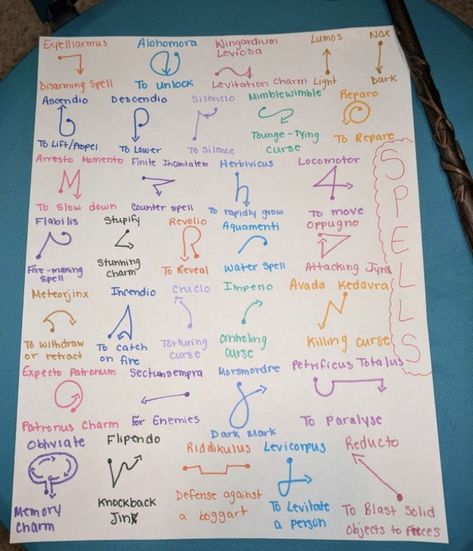 Expelliarmus
Disarming Spell
Alohomora
To unlock
Wingardium
Leviosa
Levitation Charm
Lumos
Light
Nox
Dark
Ascendio
To Lift/Propel
Descendio
To Lower
Silencio
To Silence
Mimblewimble
Tounge-Tying
curse
Reparo
To Repare
Arresto Momento
To Slow down
Finite Incantatem
Counter spell
Herbivicus
To rapidly grow
Locomotor
To move
Flabilis
Fire-making
spell
Stupify
Stunning
charm
Revelio
To Reveal
Aquamenti
Water Spell
Oppugno
Attacking Jynx
Meteorjinx
To withdraw
or retract
Incendio
To catch
on fire
Crucio
Torturing
curse
Imperio
Controling
curse
Avada Kedavra
Killing curse
Expecto Patronum
Patronus Charm
Sectunsempra
For Enemies
Morsmordre
Dark Mark
Petrificus Totalus
To Paralyse
Obliviate
Memory
Charm
Flipendo
Knockback
Jinx
Riddikulus
Defense against
a boggart
Levicorpus
To Levitate
a person
Reducto
To Blast Solid
Objects to Pieces
SPELLS